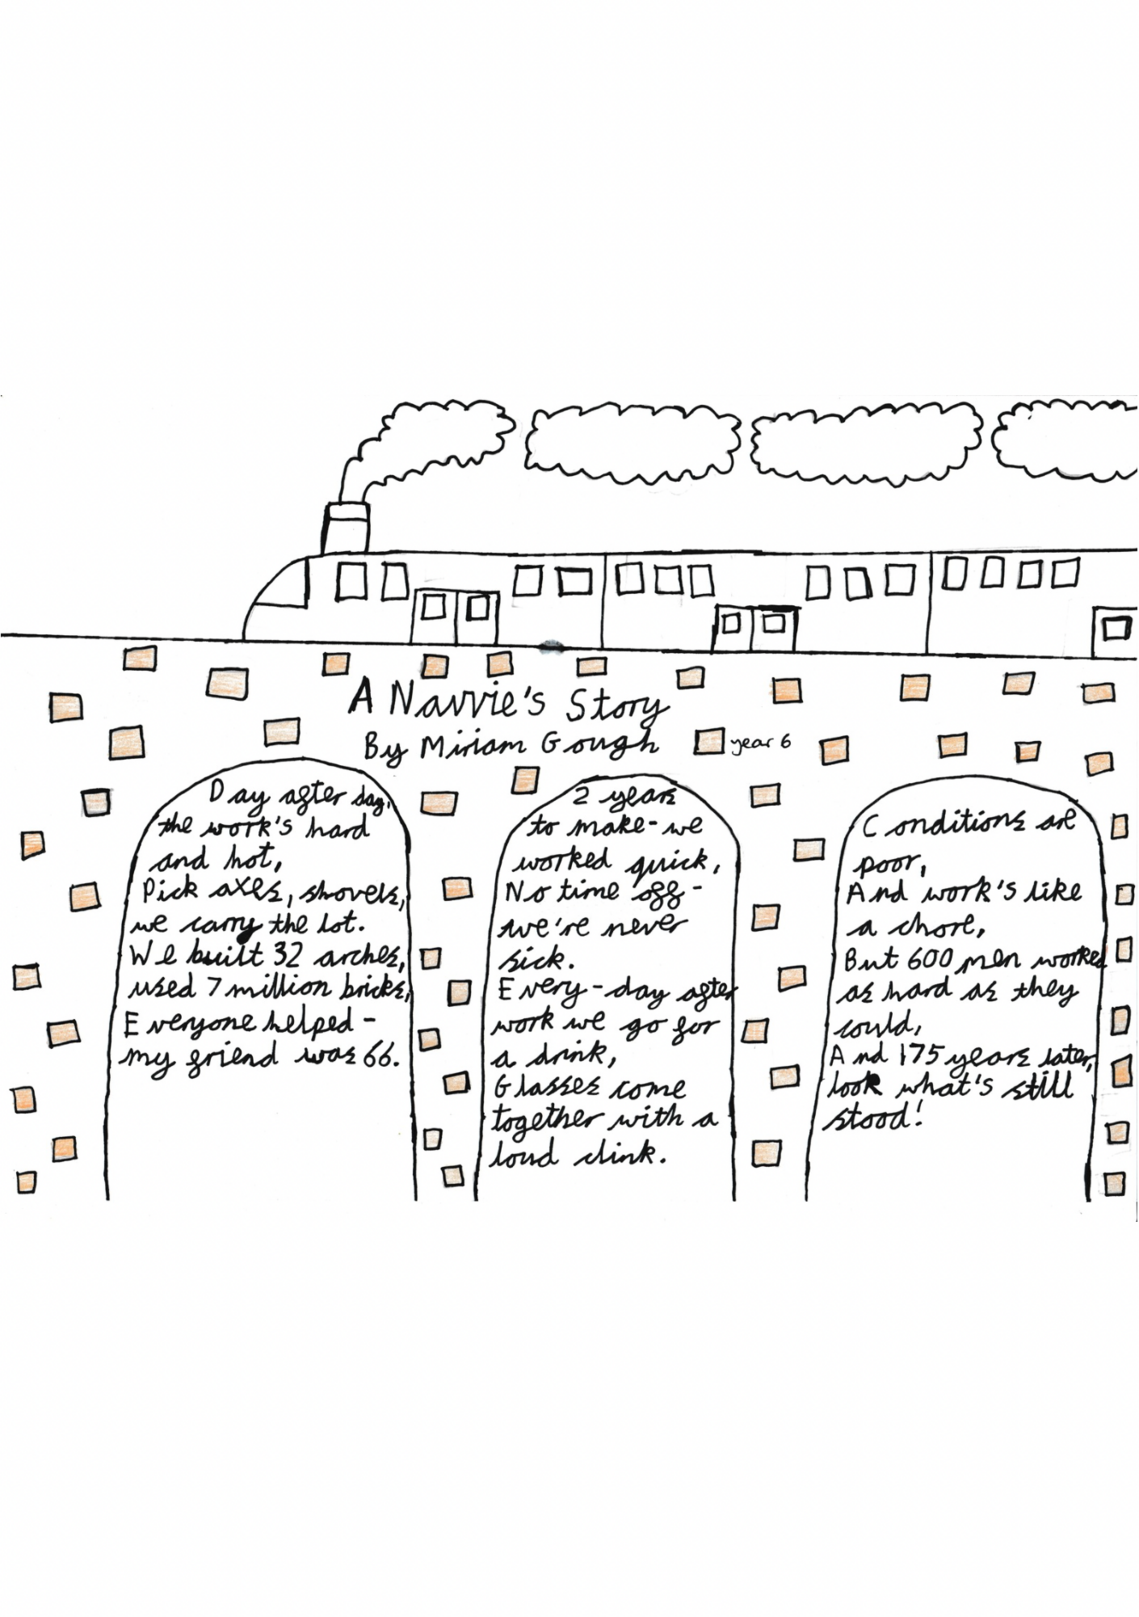 A Navvie's Story
By Miriam Gough year 6
Day after day,
the work's hard
and hot,
Pick axes, shovels,
we carry the lot.
We built 32 arches,
used 7 million bricks,
Everyone helped -
my friend was 66.
2 years
to make - we
worked quick,
No time off -
we're never
sick.
Every-day after
work we go for
a drink,
Glasses come
together with a
loud clink.
Conditions are
poor,
And work's like
a chore,
But 600 men worked
as hard as they
could,
And 175 years later,
look what's still
stood!